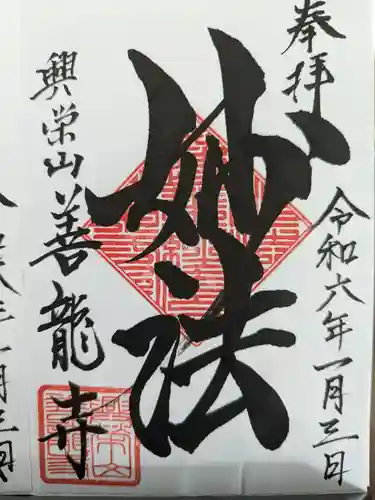 奉拝
令和六年一月三日
妙法
興栄山善龍寺